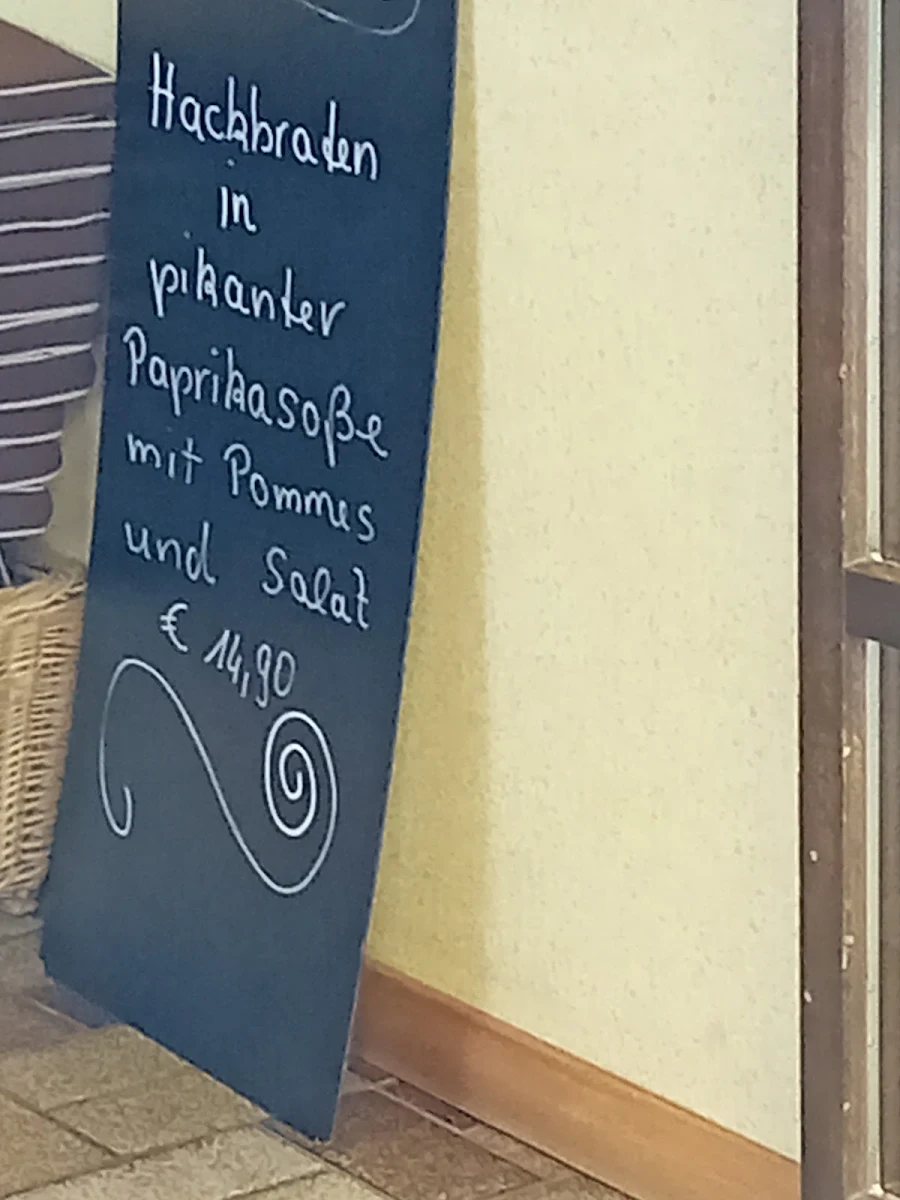 Hackbraten
in
pikanter
Paprikasoße
mit Pommes
und Salat
€ 14,90